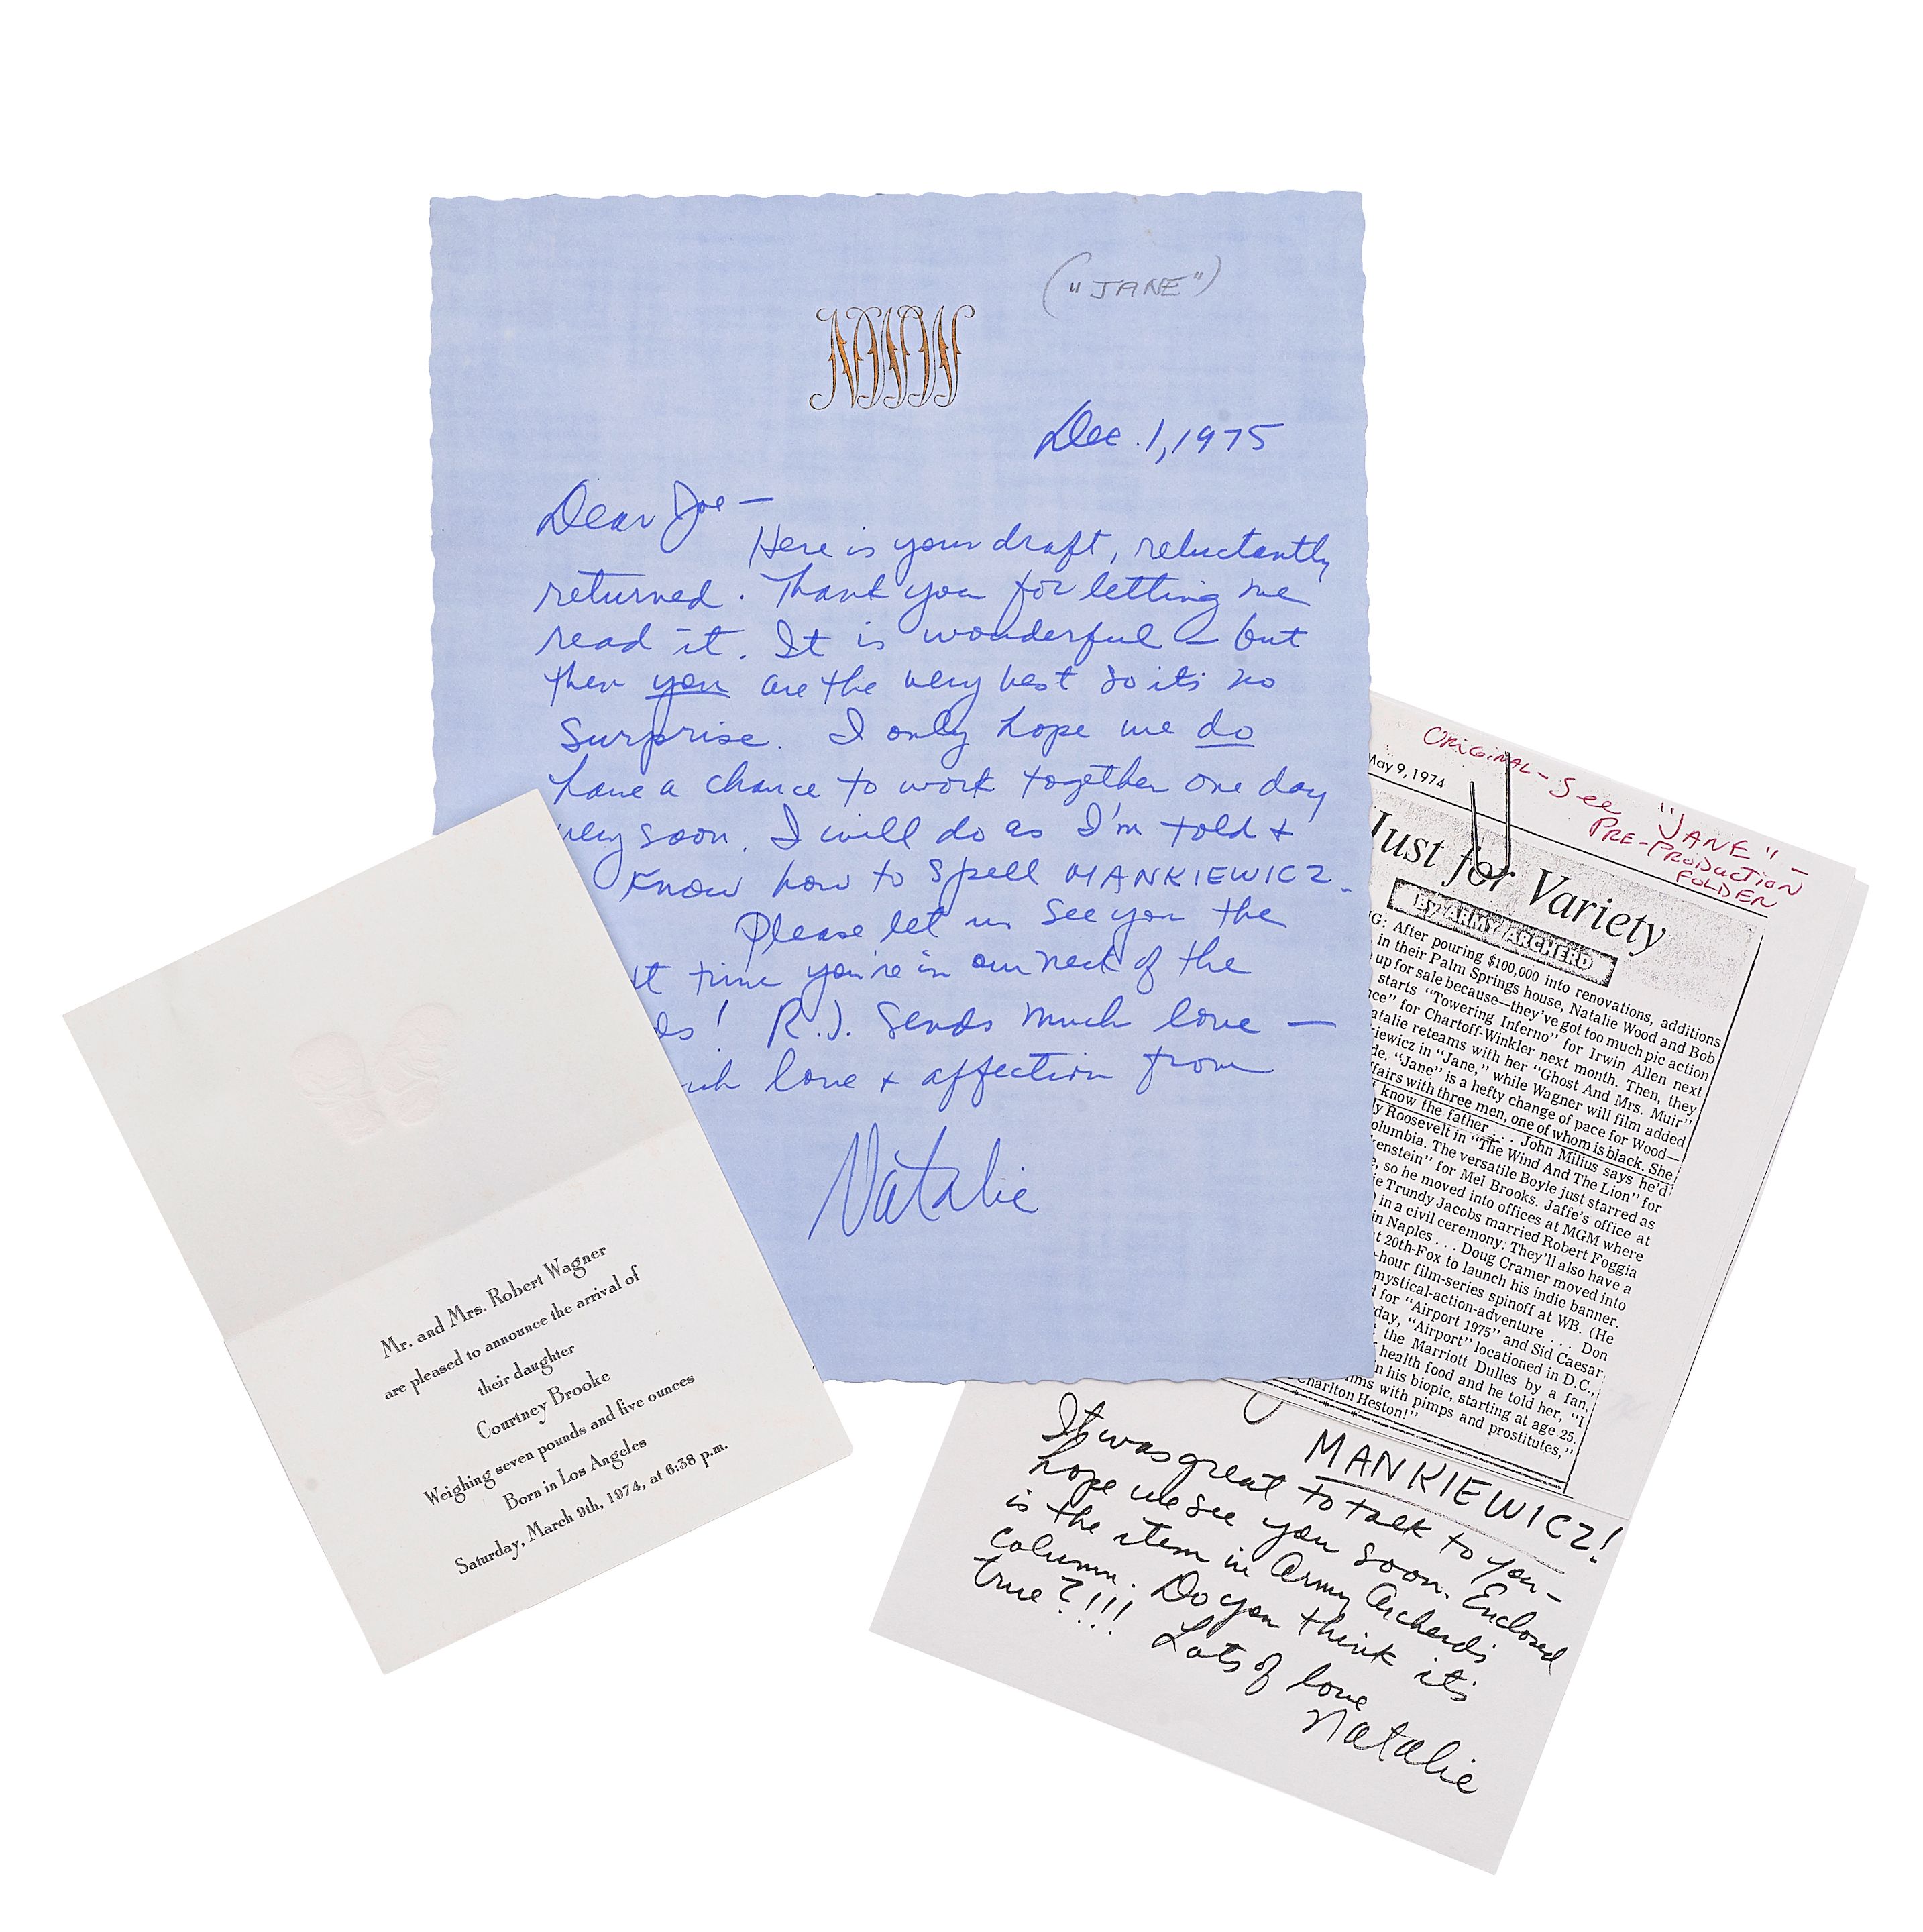 ("JANE")
NWW
Dec. 1, 1975
Dear Joe —
Here is your draft, reluctantly
returned. Thank you for letting me
read it. It is wonderful – but
then you are the very best so it's no
surprise. I only hope we do
have a chance to work together one day
very soon. I will do as I'm told +
know how to spell MANKIEWICZ.
Please let us see you the
time you're in our neck of the
! R.J. sends much love —
love + affection from
Natalie
Mr. and Mrs. Robert Wagner
are pleased to announce the arrival of
their daughter
Courtney Brooke
Weighing seven pounds and five ounces
Born in Los Angeles
Saturday, March 9th, 1974, at 6:38 p.m.
ORIGINAL - See "JANE" -
PRE-PRODUCTION
FOLDER
May 9, 1974
Just for Variety
BY ARMY ARCHERD
G: After pouring $100,000 into renovations, additions
in their Palm Springs house, Natalie Wood and Bob
up for sale because—they've got too much pic action
starts "Towering Inferno" for Irwin Allen next
nce" for Chartoff-Winkler next month. Then, they
atalie reteams with her "Ghost And Mrs. Muir"
kiewicz in "Jane," while Wagner will film added
de. "Jane" is a hefty change of pace for Wood—
ffairs with three men, one of whom is black. She
t know the father . . . John Milius says he'd
y Roosevelt in "The Wind And The Lion" for
olumbia. The versatile Boyle just starred as
kenstein" for Mel Brooks. Jaffe's office at
e, so he moved into offices at MGM where
ie Trundy Jacobs married Robert Foggia
) in a civil ceremony. They'll also have a
in Naples . . . Doug Cramer moved into
at 20th-Fox to launch his indie banner.
-hour film-series spinoff at WB. (He
mystical-action-adventure . . . Don
d for "Airport 1975" and Sid Caesar
day, "Airport" locationed in D.C.,
the Marriott Dulles by a fan,
f health food and he told her, "I
n his biopic, starting at age 25,
ms with pimps and prostitutes,"
Charlton Heston!"
MANKIEWICZ!
It was great to talk to you –
hope we see you soon. Enclosed
is the item in Army Archerd's
column. Do you think it's
true?!!!
Lots of love
Natalie